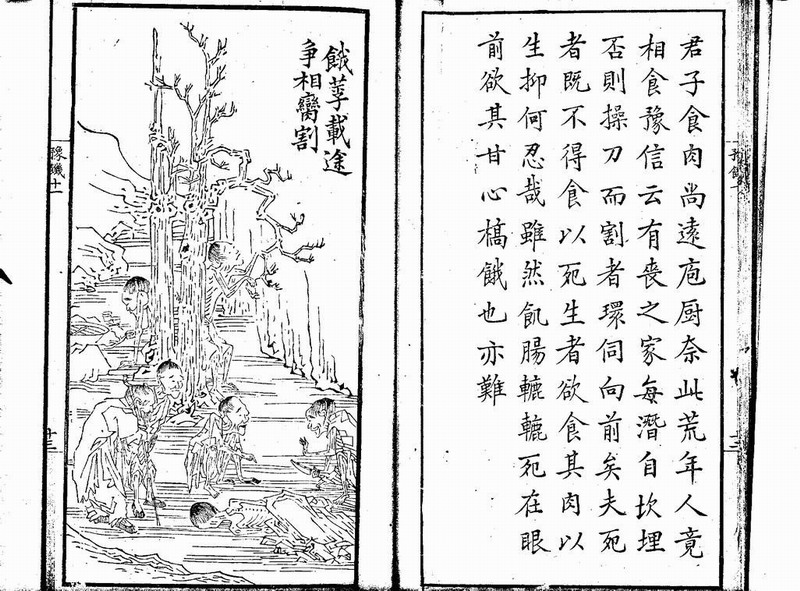 君子食肉尚遠庖厨奈此荒年人竟
相食豫信云有喪之家每潛自坎埋
否則操刀而割者環伺向前矣夫死
者既不得食以死生者欲食其肉以
生抑何忍哉雖然飢腸轆轆死在眼
前欲其甘心槁餓也亦難
餓莩載途
争相臠割
十三